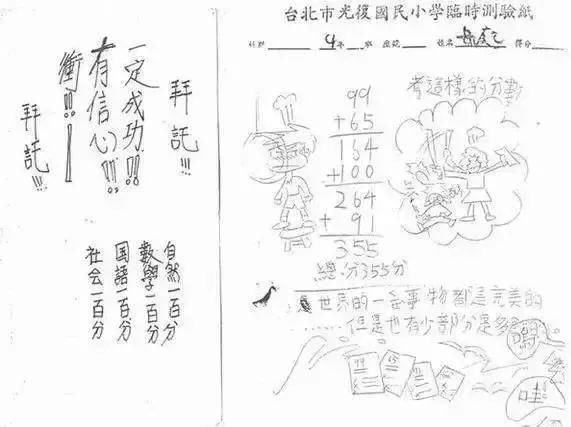 台北市光復國民小學臨時測驗紙
科別 4年 班 座號 姓名 得分
拜託!!!
一定成功!!
有信心!!!
衝!!!
拜託!!!
自然一百分
數學一百分
国語一百分
社会一百分
考這樣的分數
99
+65
164
+100
264
+91
355
總分355分
世界的一些事物都這完美的
……但是也有少部分是
嗚
哇